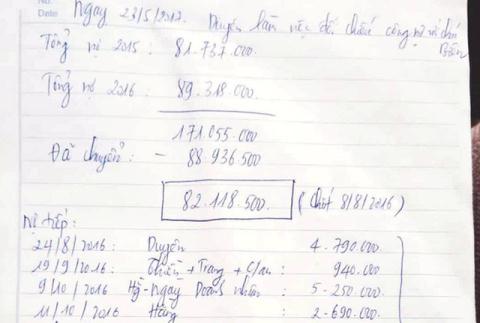 No.
Date Ngày 23/5/2017. Duyên làm việc đối chiếu công nợ với chú
Tổng nợ 2015 : 81.737.000.
Tổng nợ 2016 : 89.318.000.
171.055.000
Đã chuyển : - 88.936.500
82.118.500. (chốt 8/8/2016)
Nợ tiếp:
24/8/2016 : Duyên 4.790.000.
19/9/2016 : Thiên + Trang + C/an : 940.000
9/10/2016 - Ngày Doanh nhân : 5-250.000
11/10/2016 Hàng : 2-690.000